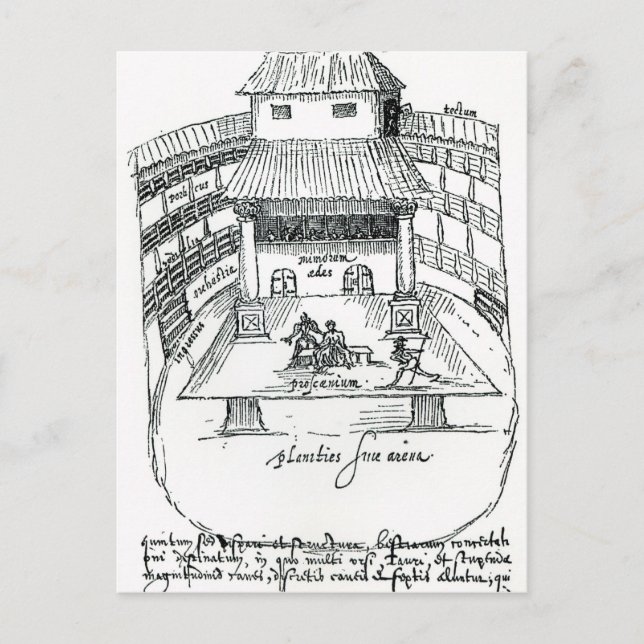 tectum
porticus
sedilia
orchestra
ingressus
mimorum
ædes
proscænium
planities sive arena
quintum sed dispari et structura, bestiarum concertati
oni destinatum, in quo multi ursi, Tauri, et stupendæ
magnitudinis canes, discretis caveis & septis aluntur, qui